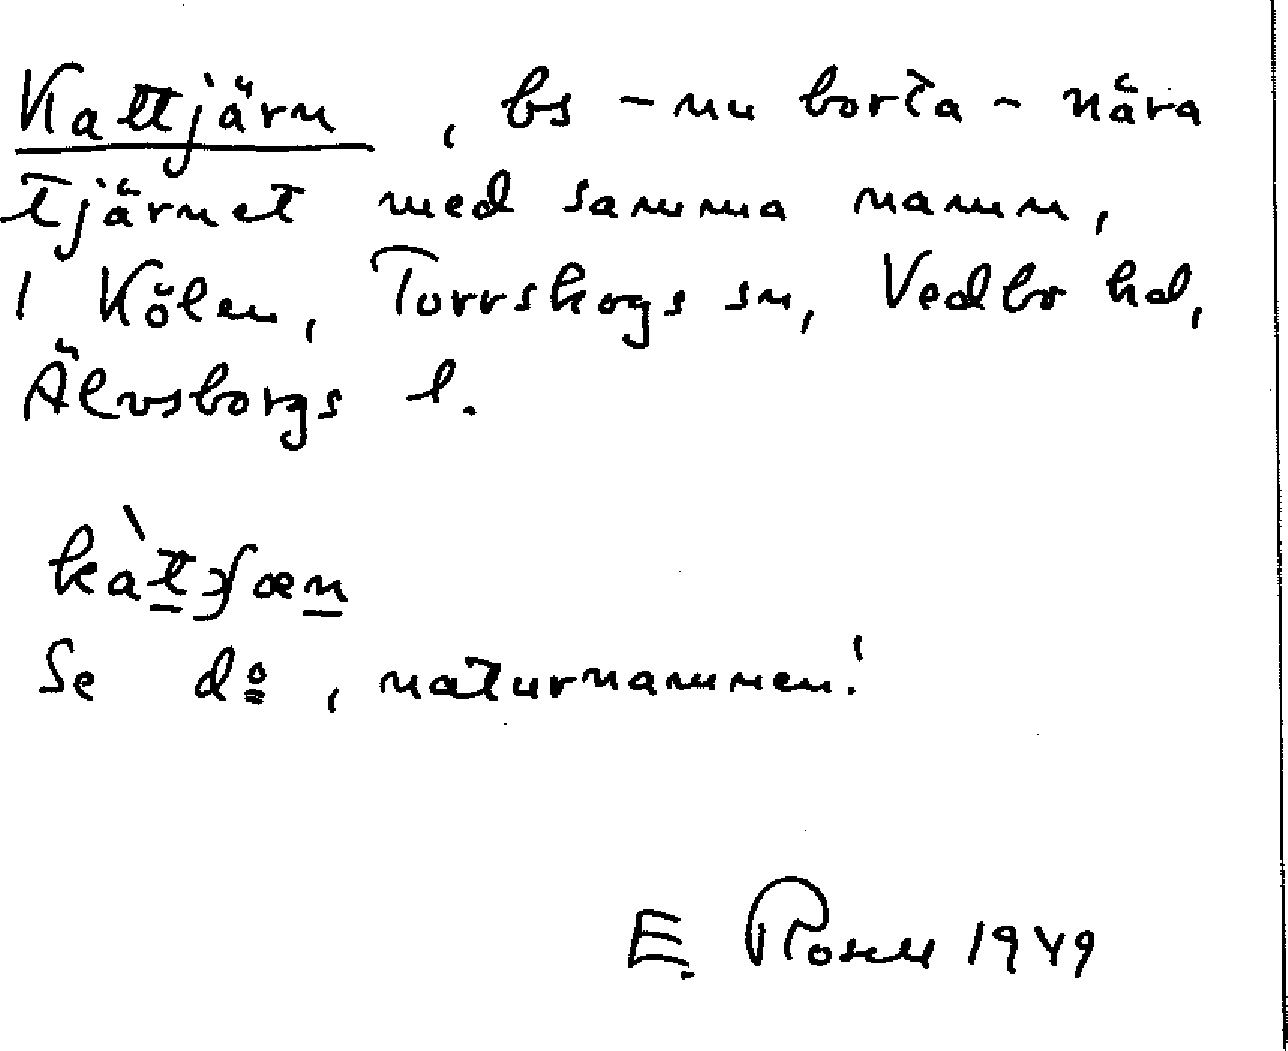 Kattjärn, bs - nu borta - nära
tjärnet med samma namn,
i Kölen, Torrskogs sn, Vedbo hd,
Älvsborgs l.
Se do, naturnamnen!
E. Rosell 1949